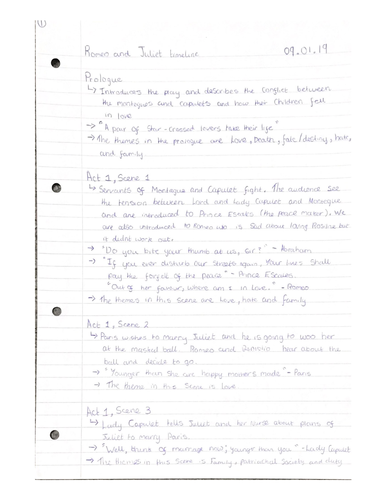 ①
Romeo and Juliet timeline 09.01.19
Prologue
↳ Introduces the play and describes the conflict between
the Montagues and Capulets and how their children fell
in love
→ "A pair of star-crossed lovers take their life"
→ The themes in the prologue are Love, Death, fate/destiny, hate,
and family.
Act 1, Scene 1
↳ Servants of Montague and Capulet fight. The audience see
the tension between Lord and Lady Capulet and Montague
and are introduced to Prince Escales (the peace maker). We
are also introduced to Romeo who is sad about loving Rosaline but
it didnt work out.
→ "Do you bite your thumb at us, sir?" - Abraham
→ "If you ever disturb our streets again, Your lives shall
pay the forfeit of the peace" - Prince Escales
"Out of her favour, where am I in love." - Romeo
→ The themes in this scene are love, hate and family
Act 1, Scene 2
↳ Paris wishes to marry Juliet and he is going to woo her
at the masked ball. Romeo and Benvolio hear about the
ball and decide to go.
→ "Younger than she are happy mothers made" - Paris
→ The theme in this scene is love
Act 1, Scene 3
↳ Lady Capulet tells Juliet and her nurse about plans of
Juliet to marry Paris.
→ "Well, think of marriage now; younger than you" - Lady Capulet
→ The themes in this scene is Family, Patriarchal Society and duty